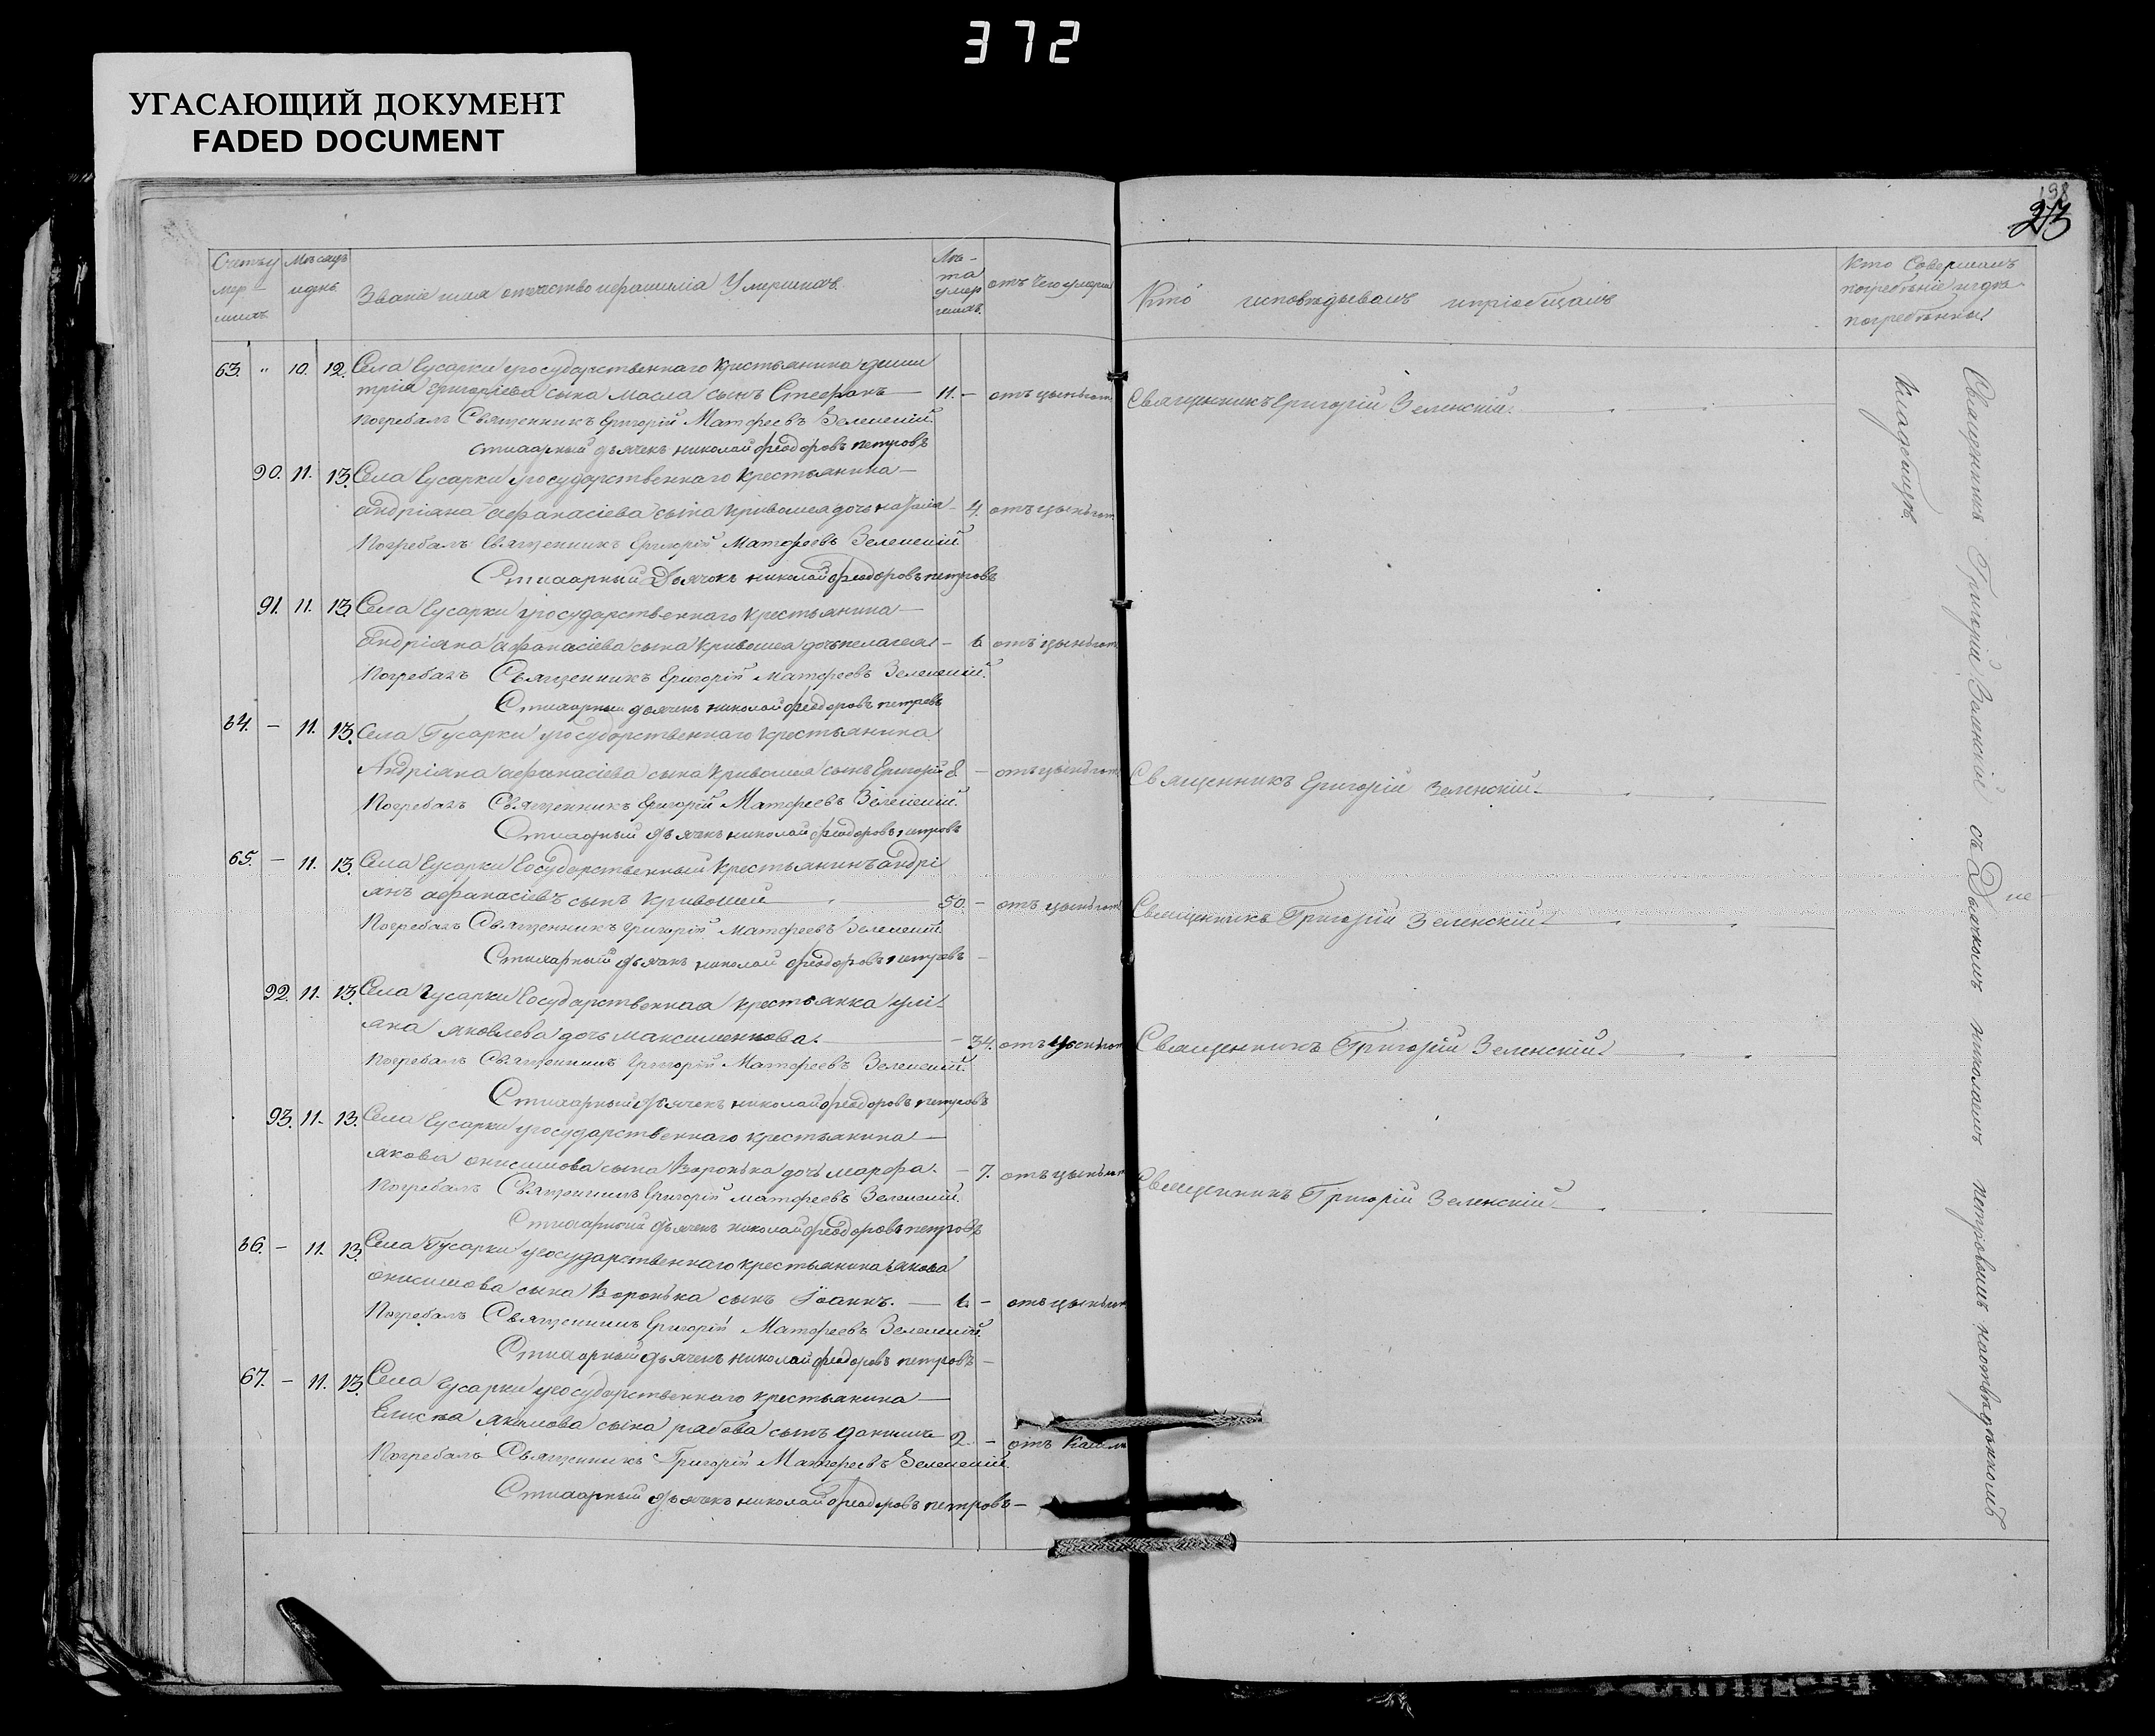 372
УГАСАЮЩИЙ ДОКУМЕНТ
FADED DOCUMENT
198
Счетъ у
мер-
шихъ
Мѣсяцъ
и день
Званіе имя отчество и фамилія Умершихъ.
Лѣ-
та
умер
шихъ.
отъ чего умерли
Кто исповѣдывалъ и пріобщалъ
Кто Совершалъ
погребѣніе и гдѣ
погребѣнны
63. " 10. 12. Села Гусарки государственнаго крестьянина дими
трія Григоріева сына Масла сынъ Стефанъ 11. - отъ цынъгот
Священникъ Григорій Зеленскій.
Погребалъ Священникъ Григорій Матфеевъ Зеленскій.
Стихарный дьячекъ николай феодоровъ петровъ
90. 11. 13. Села Гусарки государственнаго крестьянина
андріана афанасіева сына кривошея дочь наталія - 4. отъ цынъгот
Погребалъ Священникъ Григорій Матфеевъ Зеленскій
Стихарный Дьячокъ николай феодоровъ петровъ
91. 11. 13. Села Гусарки государственнаго крестьянина
андріана афанасіева сына кривошея дочь пелагея - 6 отъ цынъгот
Погребалъ Священникъ Григорій Матфеевъ Зеленскій.
Стихарный дьячекъ николай феодоровъ петровъ
64. - 11. 13. Села Гусарки государственнаго крестьянина
Андріана афанасіева сына кривошея сынъ Григорій 8. - отъ цынъгот
Священникъ Григорій Зеленскій.
Погребалъ Священникъ Григорій Матфеевъ Зеленскій.
Стихарный дьячекъ николай феодоровъ петровъ
65. - 11. 13. Села Гусарки Государственный крестьянинъ андрі
янъ афанасіевъ сынъ кривошей 50. - отъ цынъгот
Священникъ Григорій Зеленскій
Погребалъ Священникъ Григорій Матфеевъ Зеленскій.
Стихарный дьячекъ николай феодоровъ петровъ
92. 11. 13. Села Гусарки Государственная крестьянка улі-
яна яковлева дочь максименкова. - 34. отъ цынъгот
Священникъ Григорій Зеленскій
Погребалъ Священникъ Григорій Матфеевъ Зеленскій.
Стихарный дьячекъ николай феодоровъ петровъ
93. 11. 13. Села Гусарки государственнаго крестьянина
якова онисимова сына Воронька дочь марфа. - 7. отъ цынъгот
Священникъ Григорій Зеленскій
Погребалъ Священникъ Григорій матфеевъ Зеленскій.
Стихарный дьячекъ николай феодоровъ петровъ
66. - 11. 13. Села Гусарки государственнаго крестьянина якова
онисимова сына Воронька сынъ Іоаннъ. 6. - отъ цынъгот
Погребалъ Священникъ Григорій Матфеевъ Зеленскій.
Стихарный дьячекъ николай феодоровъ петровъ
67. - 11. 13. Села Гусарки государственнаго крестьянина
Елисея якимова сына рябова сынъ даніилъ 2. - отъ кашля
Погребалъ Священникъ Григорій Матфеевъ Зеленскій.
Стихарный дьячекъ николай феодоровъ петровъ
Священникъ Григорій Зеленскій съ Дьячкомъ николаемъ петровымъ
кладбищѣ